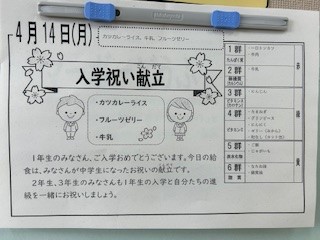 4月14日(月)
カツカレーライス、牛乳、フルーツゼリー
入学祝い献立
・カツカレーライス
・フルーツゼリー
・牛乳
1年生のみなさん、ご入学おめでとうございます。今日の給
食は、みなさんが中学生になったお祝いの献立です。
2年生、3年生のみなさんも1年生の入学と自分たちの進
級を一緒にお祝いしましょう。
1群
たんぱく質
2群
無機質
牛乳
3群
にんじん
4群
5群
炭水化物
6群
脂質